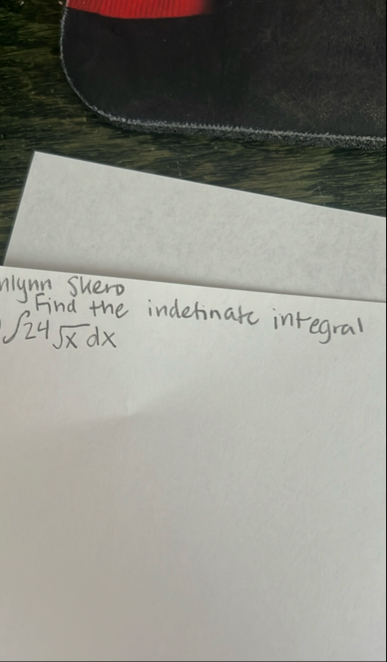 Skero
Find the indefinate integral
∫24√x dx